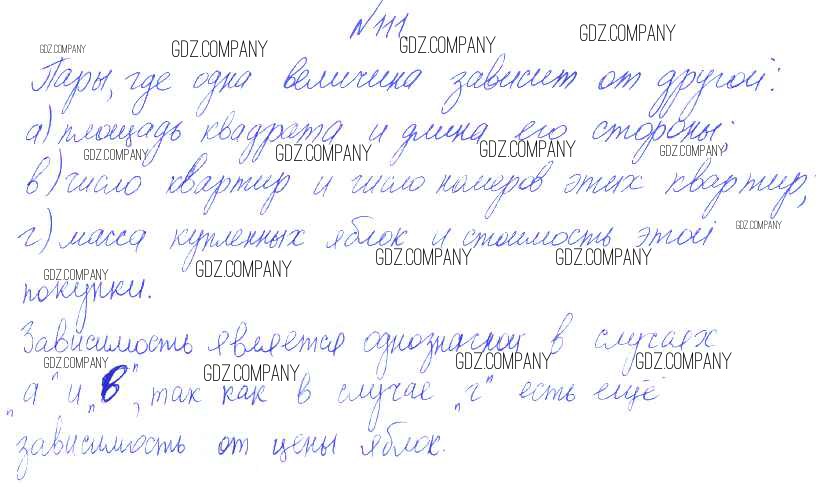 №111
GDZ.COMPANY GDZ.COMPANY GDZ.COMPANY GDZ.COMPANY
Пары, где одна величина зависит от другой:
а) площадь квадрата и длина его стороны;
GDZ.COMPANY GDZ.COMPANY GDZ.COMPANY GDZ.COMPANY
в) число квартир и число номеров этих квартир;
г) масса купленных яблок и стоимость этой
GDZ.COMPANY
GDZ.COMPANY GDZ.COMPANY GDZ.COMPANY GDZ.COMPANY
покупки.
Зависимость является однозначной в случаях
GDZ.COMPANY GDZ.COMPANY GDZ.COMPANY GDZ.COMPANY
„а" и „в", так как в случае „г" есть ещё
зависимость от цены яблок.